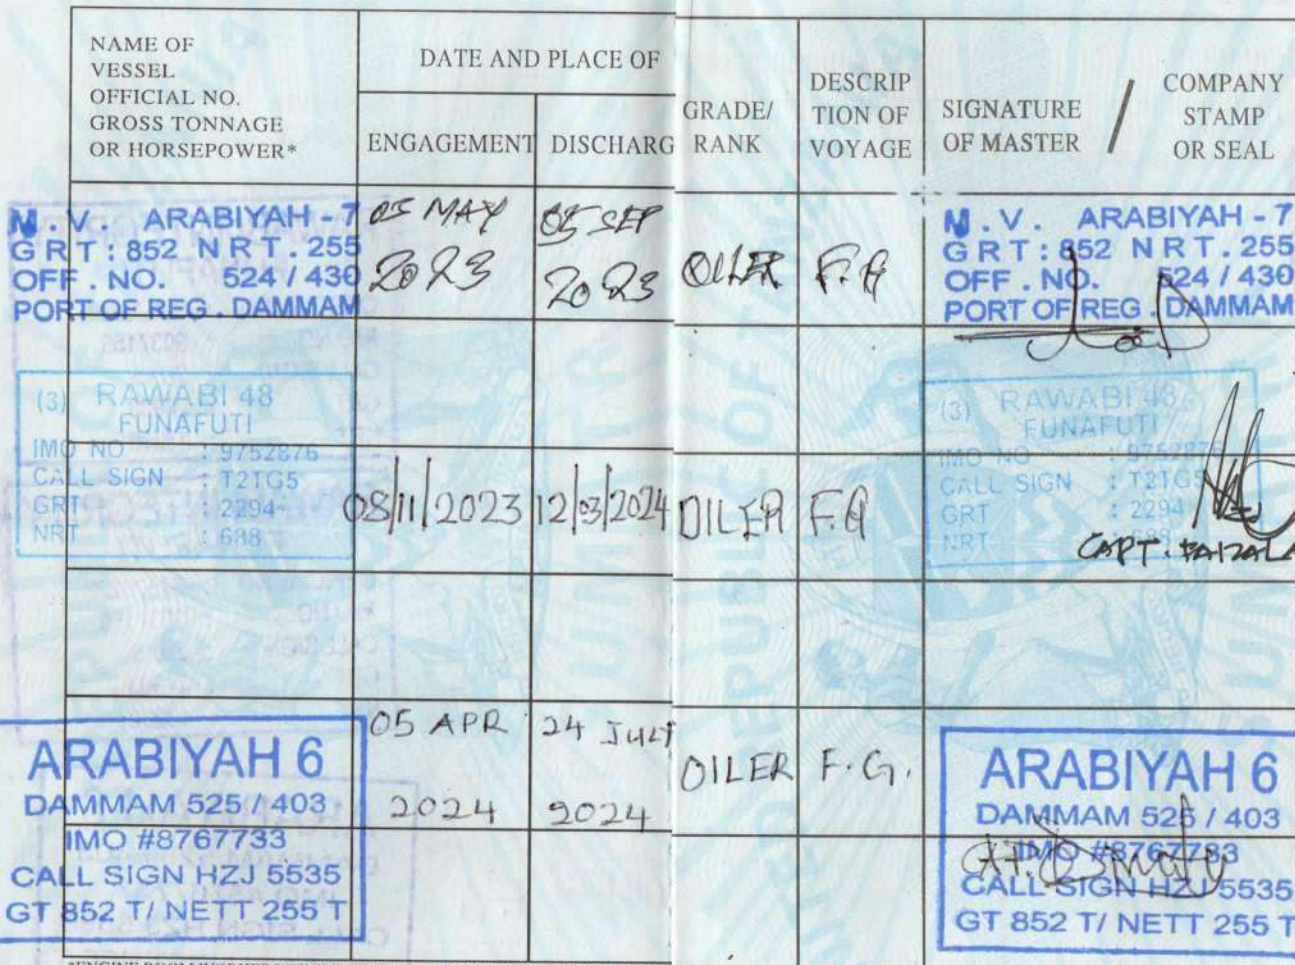 NAME OF
VESSEL
OFFICIAL NO.
GROSS TONNAGE
OR HORSEPOWER*
DATE AND PLACE OF
ENGAGEMENT
DISCHARG
GRADE/
RANK
DESCRIP
TION OF
VOYAGE
SIGNATURE
OF MASTER
/
COMPANY
STAMP
OR SEAL
M.V. ARABIYAH - 7
GRT: 852 NRT. 255
OFF. NO. 524 / 430
PORT OF REG. DAMMAM
05 MAY
2023
05 SEP
2023
OILER
F.G
M.V. ARABIYAH - 7
GRT: 852 NRT. 255
OFF. NO. 524 / 430
PORT OF REG. DAMMAM
(3) RAWABI 48
FUNAFUTI
IMO NO : 9752876
CALL SIGN : T2TG5
GRT : 2294
NRT : 688
08/11/2023
12/03/2024
OILER
F.G
(3) RAWABI 48
FUNAFUTI
IMO NO : 9752876
CALL SIGN : T2TG5
GRT : 2294
NRT
CAPT. FAIZAL
ARABIYAH 6
DAMMAM 525 / 403
IMO #8767733
CALL SIGN HZJ 5535
GT 852 T/ NETT 255 T
05 APR
2024
24 JULY
2024
OILER
F.G.
ARABIYAH 6
DAMMAM 525 / 403
IMO #8767733
CALL SIGN HZJ 5535
GT 852 T/ NETT 255 T